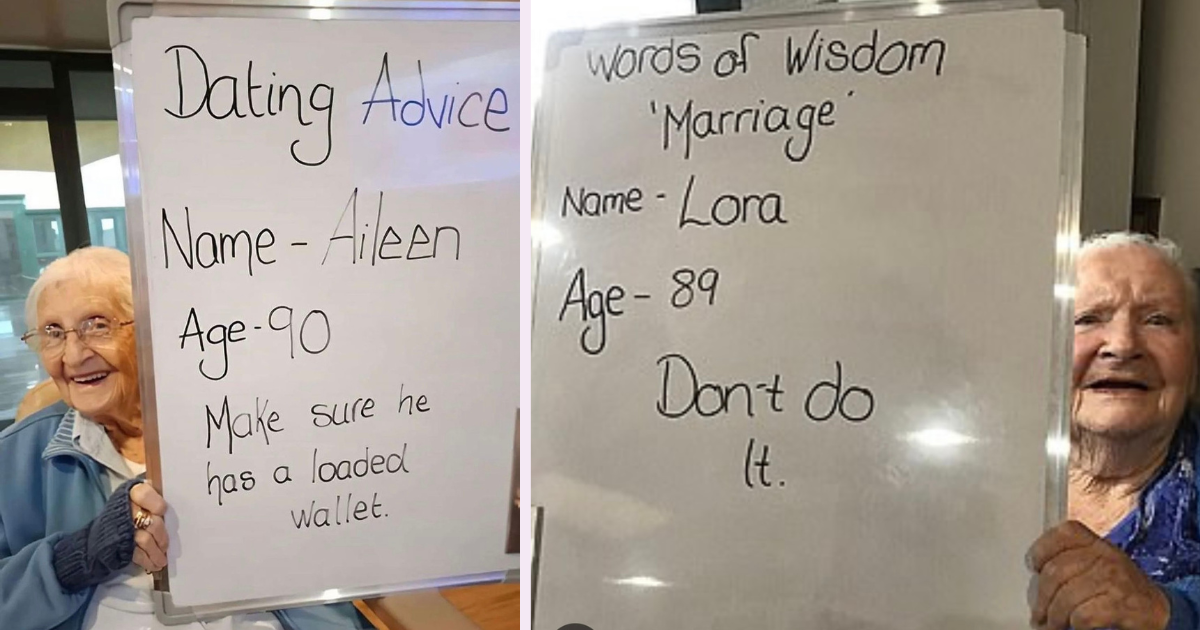 Dating Advice
Name - Aileen
Age - 90
Make sure he
has a loaded
wallet.
Words of Wisdom
'Marriage'
Name - Lora
Age - 89
Don't do
It.